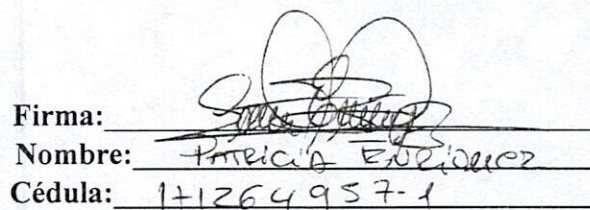 Firma:
Nombre: PATRICIA ENRIQUEZ
Cédula: 171264957-1